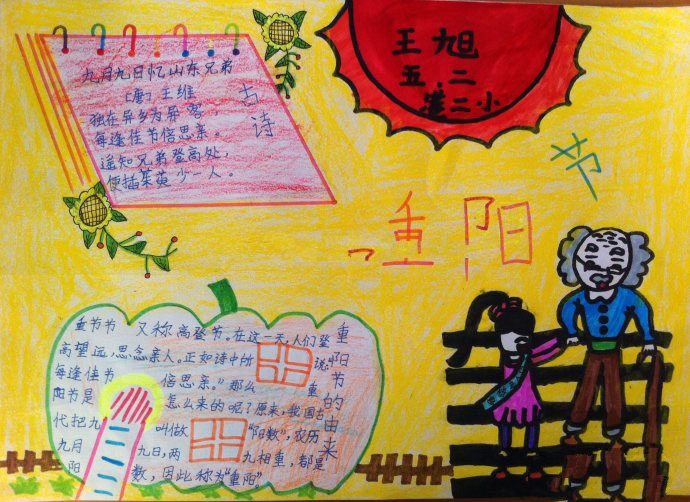 九月九日忆山东兄弟
[唐] 王维
独在异乡为异客,
每逢佳节倍思亲。
遥知兄弟登高处,
便插茱萸少一人。
古诗
王旭
五.二
二小
重阳
节
重阳节的由来
重节节 又称高登节。在这一天,人们登
高望远,思念亲人。正如诗中所 说
每逢佳节 倍思亲。"那么 重
阳节是 怎么来的呢?原来,我国古
代把九 叫做 "阳数",农历
九月 九日,两 九相重,都是
阳 数,因此称为"重阳"